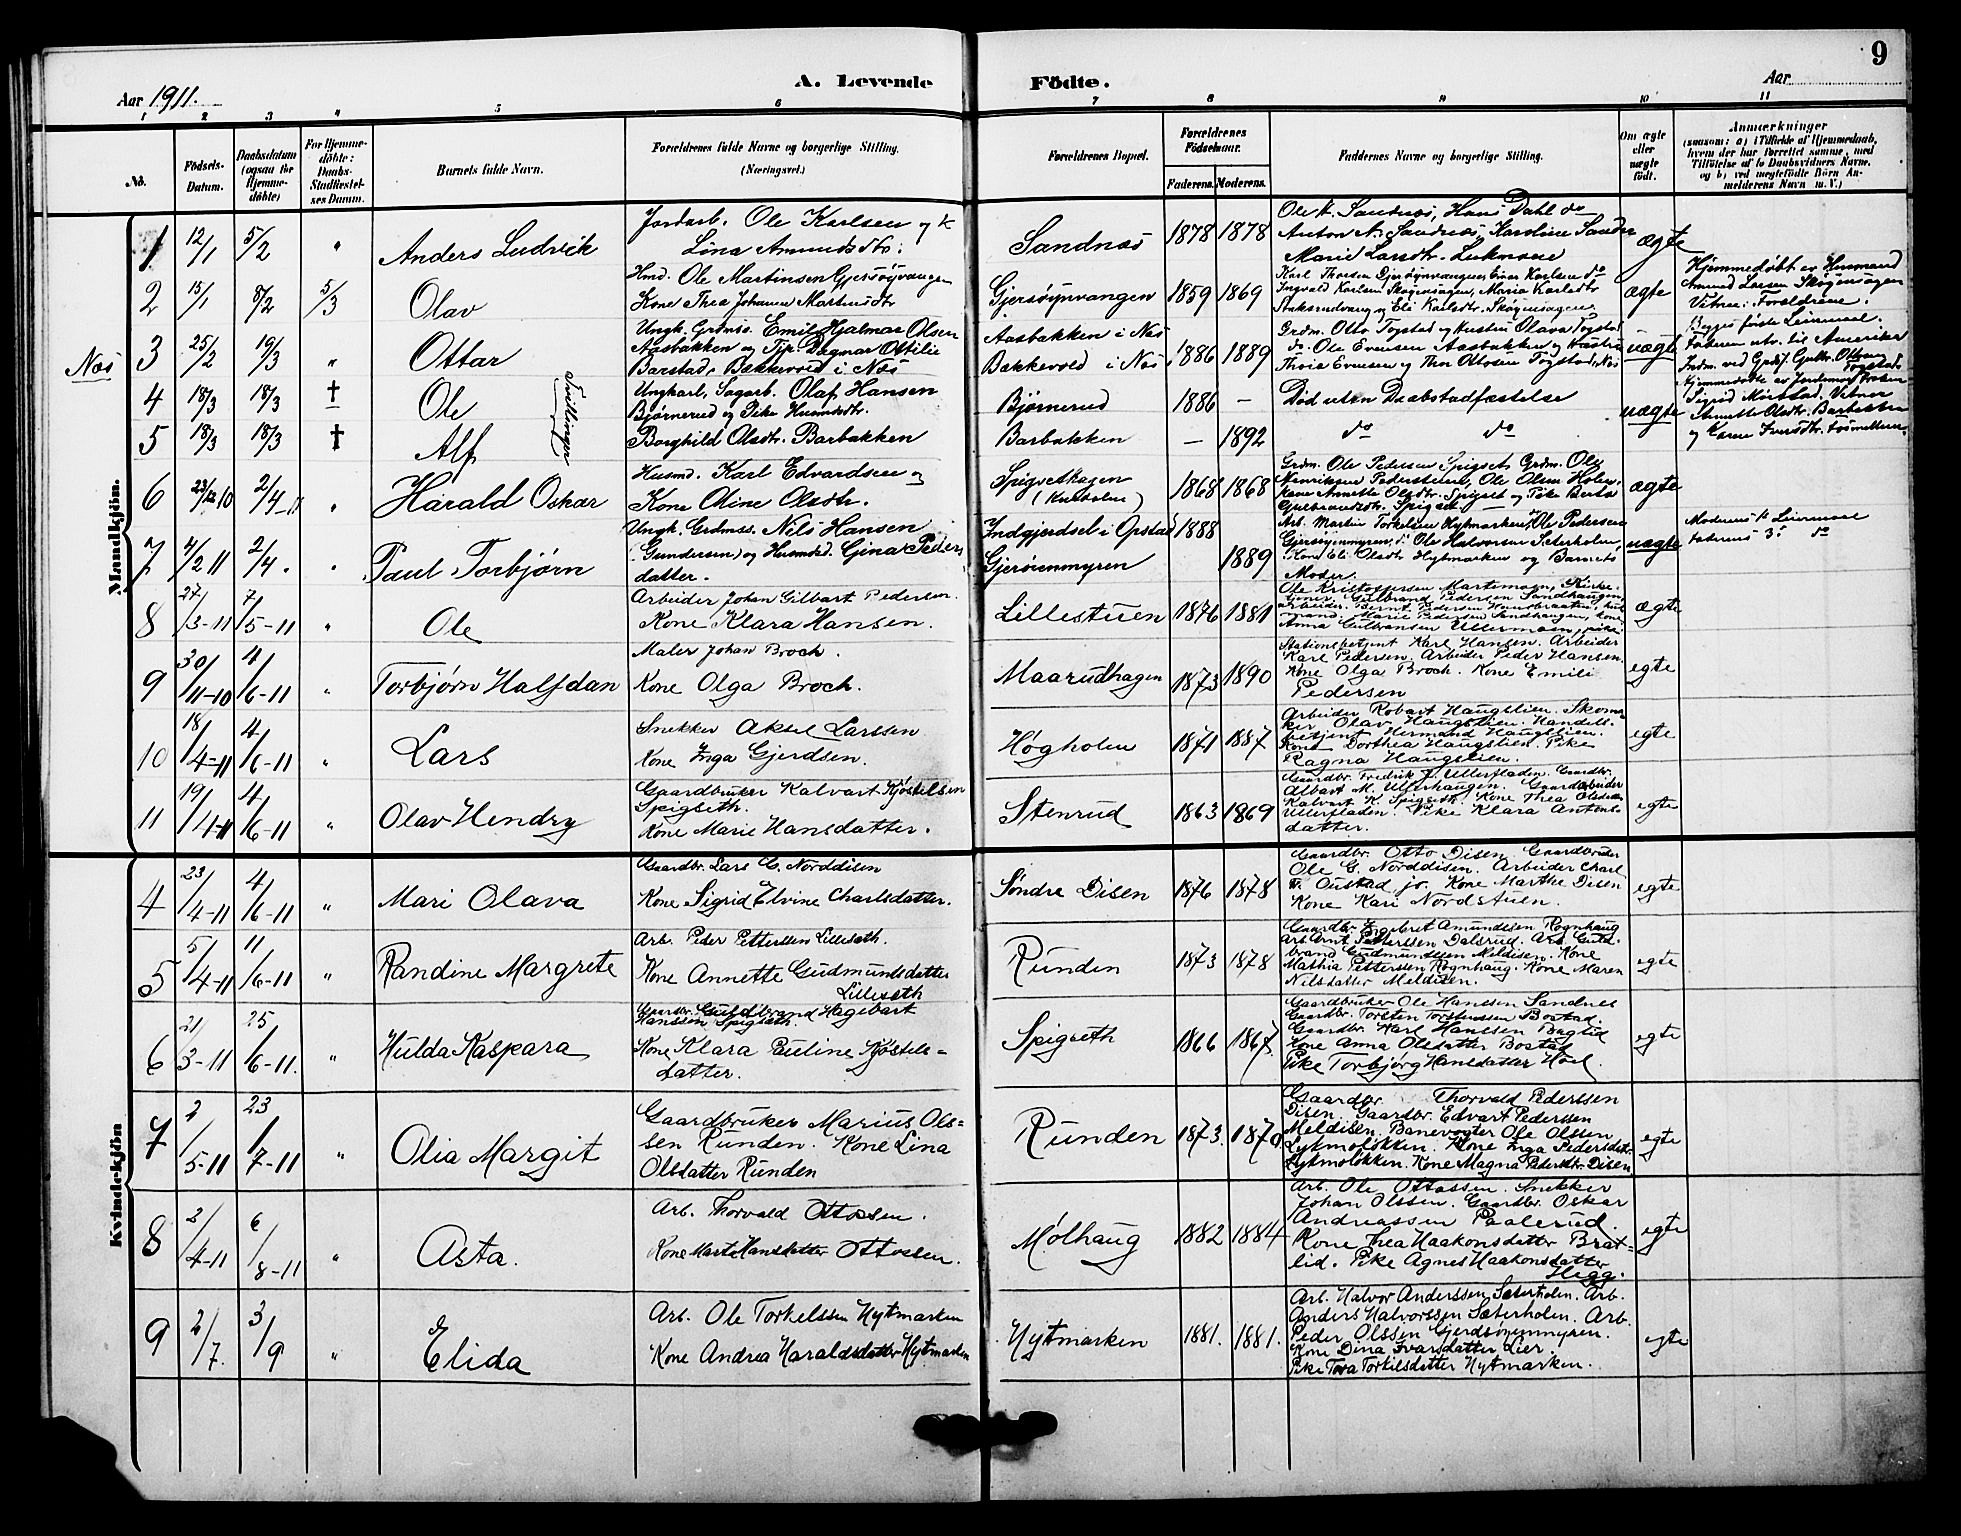 9
A. Levende Födte.
Aar 1911.
Aar
1 2 3 4 5 6 7 8 9 10 11
No.
Födsels-Datum.
Daabsdatum (ogsaa for Hjemmedöbte)
For Hjemmedöbte: Daabs-Stadfæstelses Datum.
Barnets fulde Navn.
Forældrenes fulde Navne og borgerlige Stilling. (Næringsvei.)
Forældrenes Bopæl.
Forældrenes Födselsaar.
Faderens. Moderens.
Faddernes Navne og borgerlige Stilling.
Om ægte eller uægte födt.
Anmærkninger
(saasom: a) i Tilfælde af Hjemmedaab, hvem der har forrettet samme, med Tilföielse af to Daabsvidners Navne, og b) ved uægtefödte Börn Anmelderens Navn m. V.)
Næs
Mandkjön.
1 12/1 5/2 " Anders Ludvik
Jordarb. Ole Karlsen og k
Lina Amundsdtr.
Sandnæs 1878 1878
Ole K. Sandnæs, Hans Dahl do
Anton N. Sandnæs, Karoline Sandn
Marie Larsdtr.
ægte
2 15/1 8/2 5/3 Olav
Hmd. Ole Martinsen Gjersøyvangen
Kone Thea Johanne Martinsdtr
Gjersøynvangen 1859 1869
Karl Thorsen Gjersøynvangen, Einar Karlsen do
Ingvald Karlsen Skøginsagen, Maria Karlsdtr
og Eli Karlsdtr. Skøginsagen
ægte
Hjemmedøbt av Husmand
Amund Larsen Skøginsagen
Vitner: Forældrene.
3 25/2 19/3 " Ottar
Ungk. Grdmss. Emil Hjalmar Olsen
Aasbakken og Pip. Dagmar Ottilie
Barstad, Bakkevold i Næs
Aasbakken i Næs
Bakkevold i Næs 1886 1889
Grdm. Otto Togstad og Hustru Olava Togstad
do. Ole Evensen Aasbakken og Hustru
Thora Evensen og Thor Ottosen Togstad, Næs
uægte
Begges første Leiermaal.
Faderen utv. til Amerika
4 18/3 18/3 † Ole
Tvillinger
Ungkarl, Sagarb. Olaf Hansen
Bjørnerud og Pike Husmdsdtr.
Bjørnerud 1886 —
Død uten Daabstadfæstelse
uægte
Hjemmedøbte av Jordemor Frøken
Sigrid Mørstad. Vitner
Annette Olsdtr. Barbakken
og Karen Iversdtr.
5 18/3 18/3 † Alf
Borghild Olsdtr. Barbakken
Barbakken — 1892
do do
6 23/12 10 2/4-11 " Harald Oskar
Husmd. Karl Edvardsen og
Kone Oline Olsdtr.
Spigsethagen 1868 1868
Grdm. Ole Pedersen Spigset, Grdm. Ole
Henriksen Pederstuen, Ole Olsen Holen,
Kone Annette Olsdtr. Spigset og Pike Berta
Gulbrandsdtr. Spigset —
ægte
7 4/2 11 2/4. " Paul Torbjørn
Ungk. Grdmss. Nils Hansen
(Gundersen) og Husmdsd. Gina Peders
datter.
Indgjerdsel i Opstad 1888
Gjersøienmyren 1889
Arb. Martin Torkelsen Hytmarken, Ole Pedersen
Gjersøyenmyren, do Ole Halvorsen Sæterholen,
Kone Eli Olsdtr. Hytmarken og Barnets
Moder.
uægte
Moderens 1st Leiermaal
Faderens 3. do
8 27/3-11 7/5-11 " Ole
Arbeider Johan Gilbart Pedersen.
Kone Klara Hansen.
Lillestuen 1876 1881
Ole Kristoffersen Martimoen,
Gulbrand Pedersen Sandhaugen,
arbeider. Bernt Pedersen
Marie Pedersen Sandhaugen, kone
Anna Gulbransen
ægte
9 30/11-10 4/6-11 " Torbjørn Halfdan
Maler Johan Broch.
Kone Olga Broch.
Maarudhagen 1873 1890
Stationsbetjent Karl Hansen. Arbeider
Karl Pedersen. Arbeider Peder Hansen.
Kone Olga Broch. Kone Emili
Pedersen
egte
10 18/4-11 4/6-11 " Lars
Snekker Aksel Larssen.
Kone Inga Gjerdsen.
Høgholen 1871 1887
Arbeider Robart Haugslien. Skoma-
ker Olav Haugslien. Handels-
betjent Hermand Haugslien.
Kone Dorthea Haugslien. Pike
Ragna Haugslien.
egte
11 19/4-11 4/6-11 " Olav Hendry
Gaardbruker Kalvart Kjøstilsen
Spigseth.
Kone Marie Hansdatter.
Stenrud 1863 1869
Gaardbr. Fredrik J. Ullerfladen. Gaardbr.
Albart M. Ullerhaugen. Gaardarbeider
Kalvart K. Spigseth. Kone Thea Olsdatter
Ullerfladen. Pike Klara Antons-
datter.
egte
Kvindekjön
4 23/4-11 4/6-11 " Mari Olava
Gaardbr. Lars G. Norddisen
Kone Sigrid Elvine Charlsdatter.
Søndre Disen 1876 1878
Gaardbr. Otto Disen. Gaardbruker
Ole G. Norddisen. Arbeider Charl
T. Oustad jr. Kone Marthe Disen
Kone Kari Nordstuen.
egte
5 5/4-11 11/6-11 " Randine Margrete
Arb. Peder Petterssen Lilleseth.
Kone Annette Gudmundsdatter
Lilleseth
Runden 1873 1878
Gaardbr. Engebret Amundssen Rognhaug
Arb. Arnt Petterssen Dalsrud. Arb. Guld-
brand Gudmundssen Meldisen. Kone
Mathia Petterssen Rognhaug. Kone Maren
Nilsdatter Meldisen.
egte
6 21/3-11 25/6-11. " Hulda Kaspara
Gaardbr. Guldbrand Hagebart
Hanssen Spigseth.
Kone Klara Pauline Kjøstels-
datter.
Spigseth 1866 1867
Gaardbruker Ole Hanssen Sandnes
Gaardbr. Torsten Torstenssen Bostad.
Gaardbr. Karl Hanssen Baglid
Kone Anna Olsdatter Bostad
Pike Torbjørg Hansdatter Hoel.
egte
7 2/5-11 23/7-11 " Olia Margit
Gaardbruker Marius Ols-
sen Runden. Kone Lina
Olsdatter Runden
Runden 1873. 1870
Gaardbr. Thorvald Pederssen
Disen. Gaardbr. Edvart Pederssen
Meldisen. Banevogter Ole Olssen
Lykmoløkken. Kone Inga Pedersdatr
Lykmoløkken. Kone Magna Pedersdtr. Disen
egte
8 2/4-11 6/8-11 " Asta.
Arb. Thorvald Ottossen.
Kone Marte Hansdatter Ottossen.
Mølhaug 1882 1884
Arb. Ole Ottossen. Snekker
Johan Olssen. Gaardbr. Oskar
Andreassen Paalerud.
Kone Thea Haakonsdatter Brat-
lid. Pike Agnes Haakonsdatter
Hegg.
egte
9 2/7 3/9 " Elida
Arb. Ole Torkelssen Hytmarken
Kone Andrea Haraldsdatter Hytmarken
Hytmarken 1881. 1881.
Arb. Halvor Anderssen Sæterholen. Arb.
Anders Halvorssen Sæterholen. Arb.
Peder Olssen Gjerdsøyenmyren.
Kone Dina Ivarsdatter Lier.
Pike Tora Torkilsdatter Hytmarken.
egte